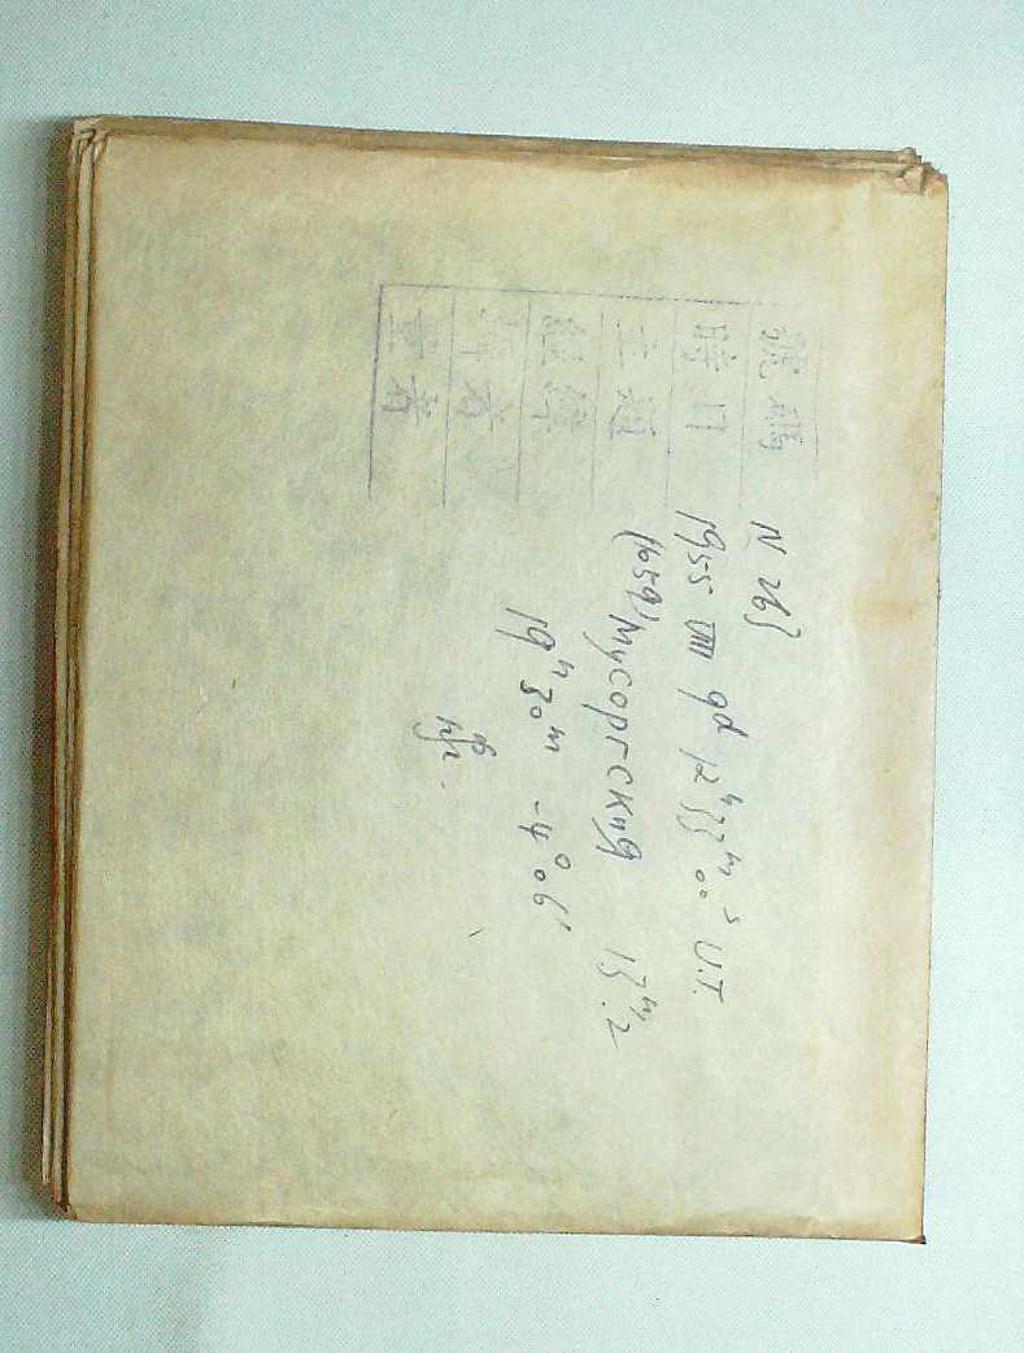 號碼 N 263
時日 1955 VIII 9d 12h 33m 00s U.T.
主題 (1059) Мусоргския 13m.2
經緯 19h 30m -4° 06'
者
者